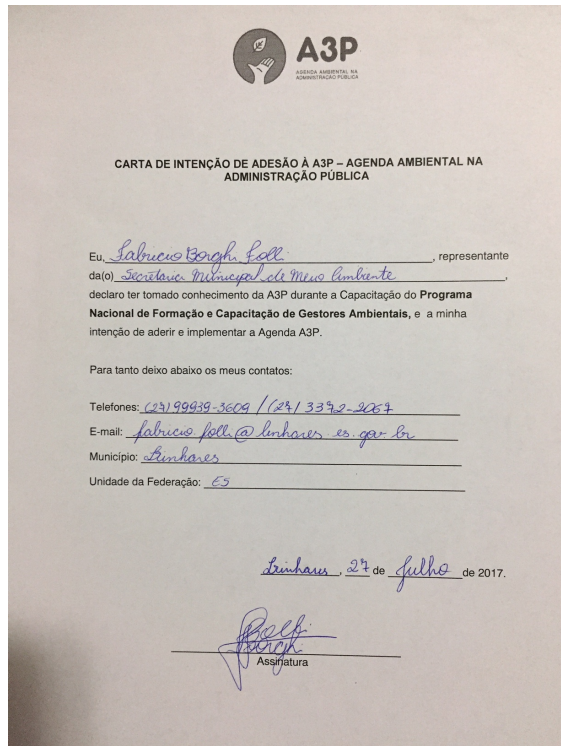 A3P
AGENDA AMBIENTAL NA
ADMINISTRAÇÃO PÚBLICA
CARTA DE INTENÇÃO DE ADESÃO À A3P – AGENDA AMBIENTAL NA
ADMINISTRAÇÃO PÚBLICA
Eu, Fabricio Borghi Folli, representante
da(o) Secretaria Municipal de Meio Ambiente,
declaro ter tomado conhecimento da A3P durante a Capacitação do Programa
Nacional de Formação e Capacitação de Gestores Ambientais, e a minha
intenção de aderir e implementar a Agenda A3P.
Para tanto deixo abaixo os meus contatos:
Telefones: (27) 99939-3609 / (27) 3372-2067
E-mail: fabricio.folli@linhares.es.gov.br
Município: Linhares
Unidade da Federação: ES
Linhares, 27 de Julho de 2017.
Assinatura